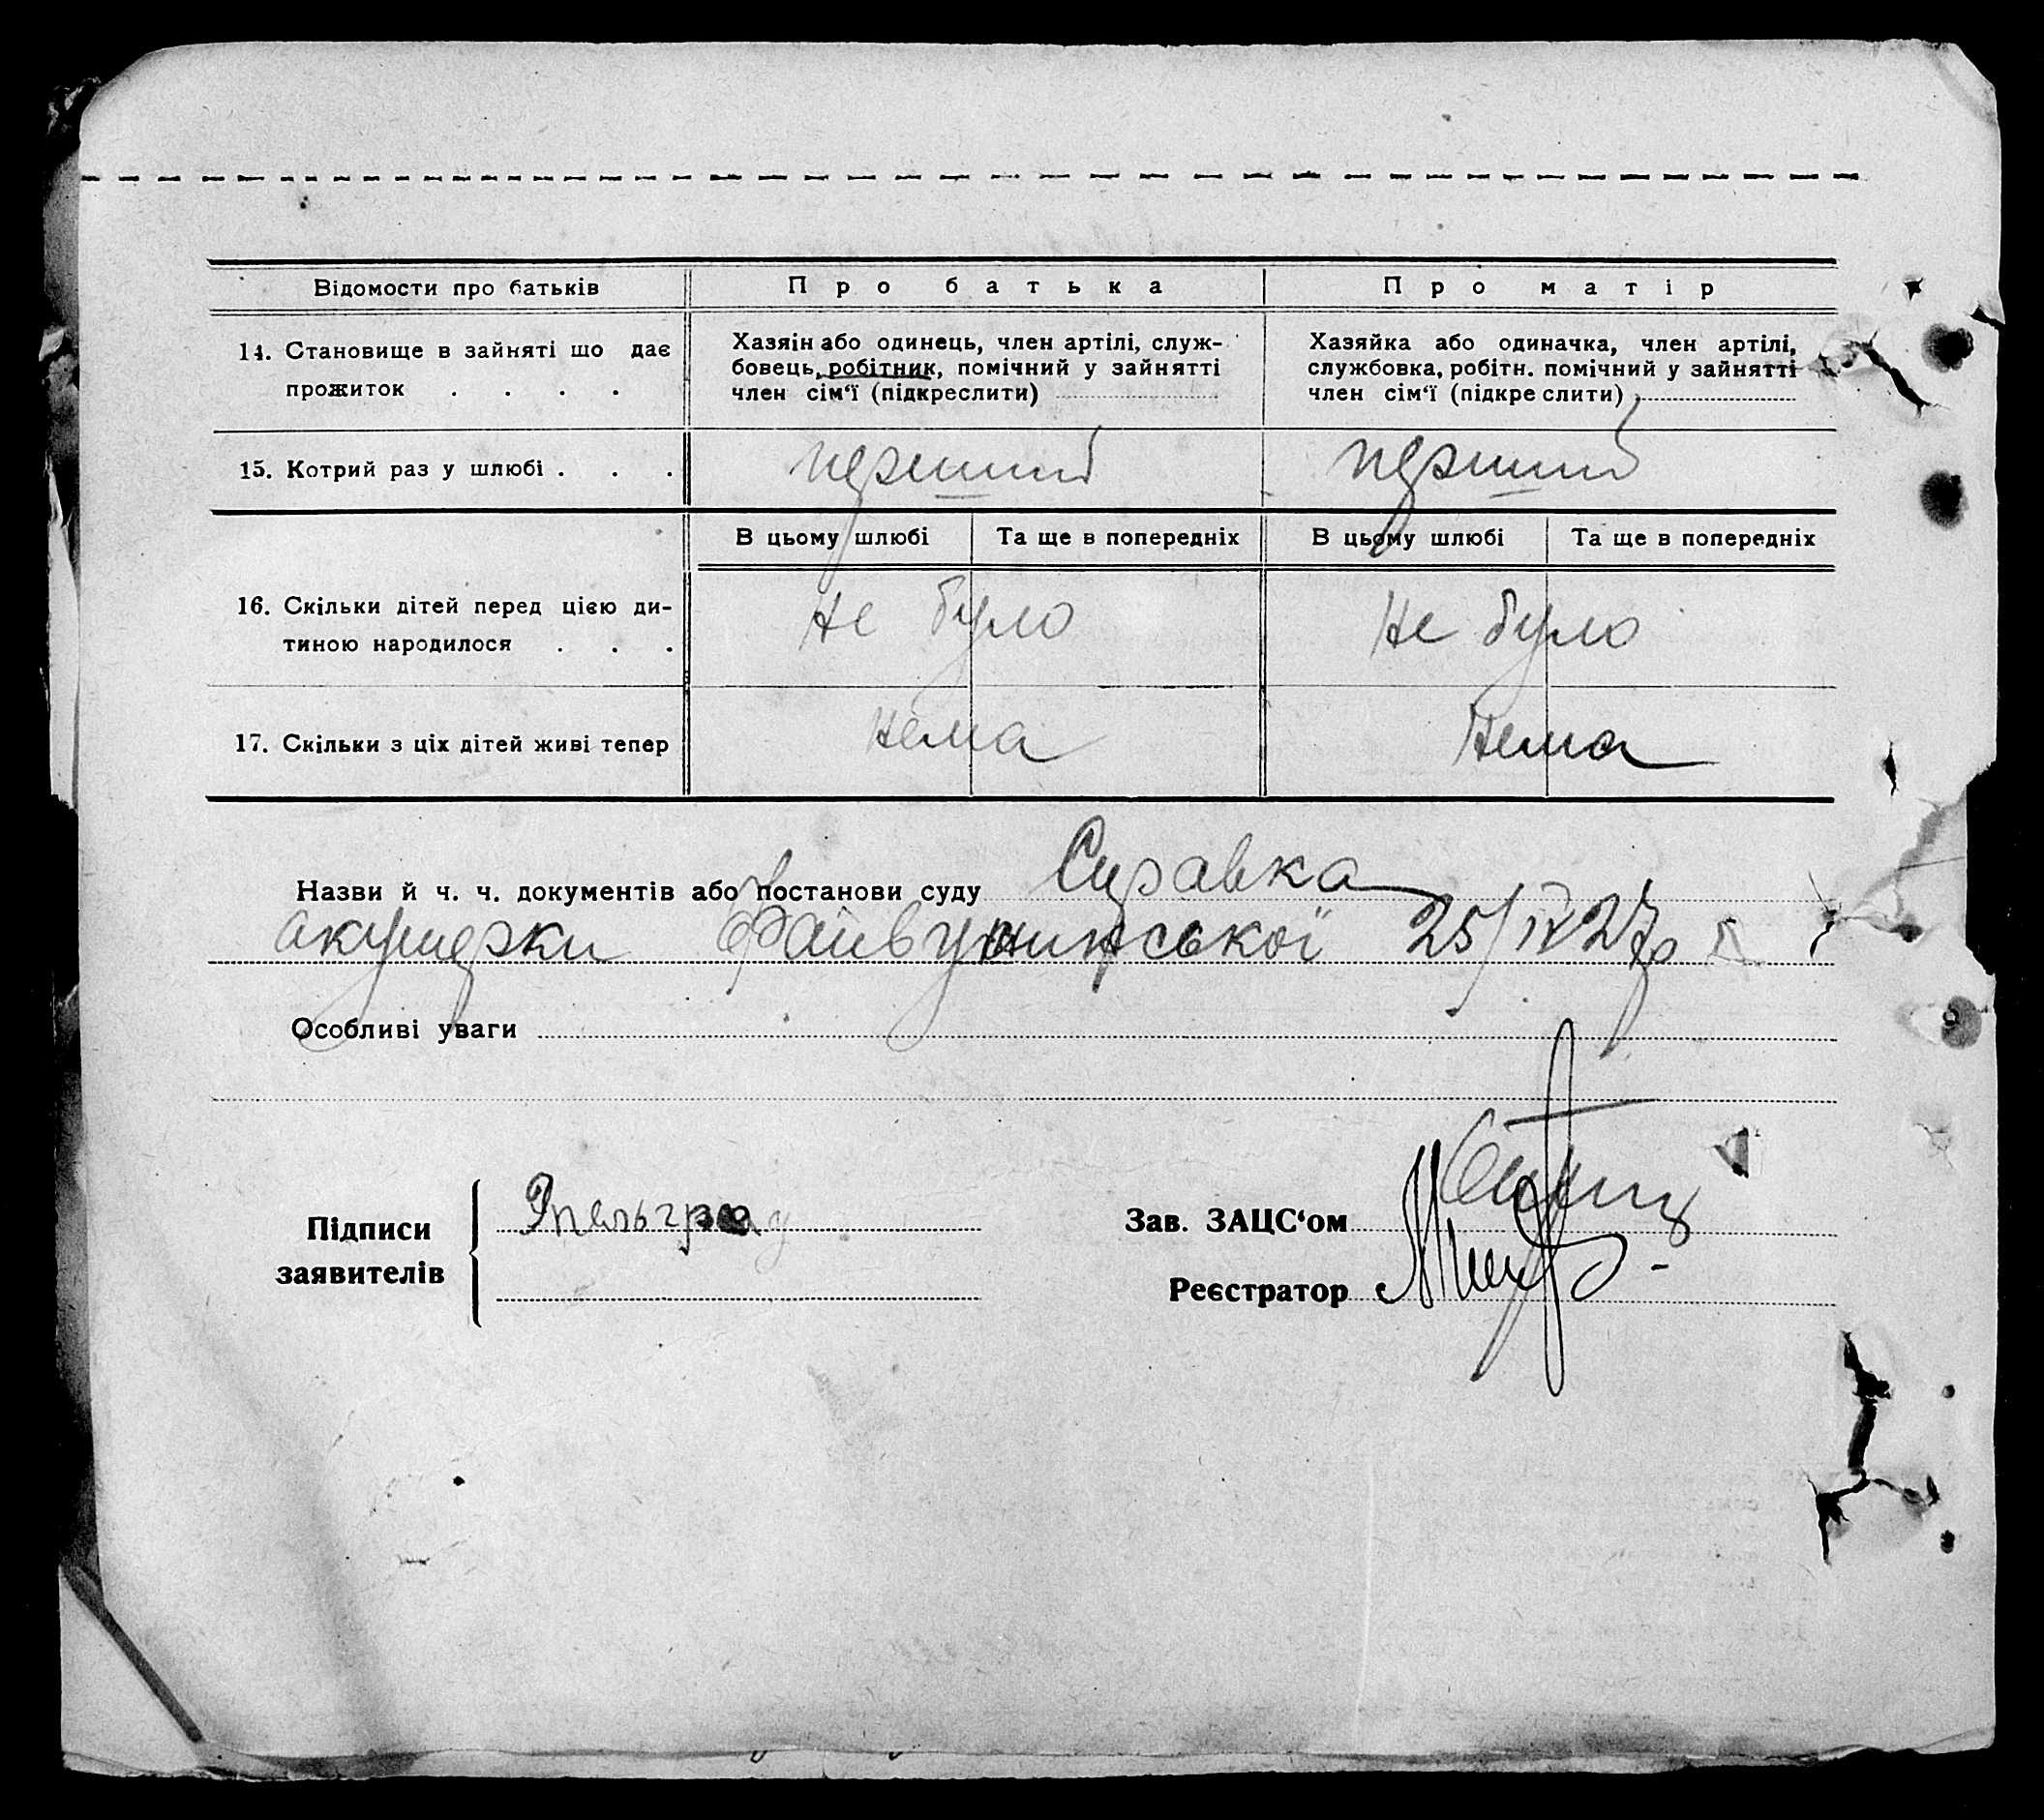 Відомости про батьків
Про батька
Про матір
14. Становище в зайняті що дає
прожиток . . . .
Хазяін або одинець, член артілі, служ-
бовець, робітник, помічний у зайнятті
член сім‘ї (підкреслити)
Хазяйка або одиначка, член артілі,
службовка, робітн. помічний у зайнятті
член сім‘ї (підкреслити)
15. Котрий раз у шлюбі . . .
перший
перший
В цьому шлюбі
Та ще в попередніх
В цьому шлюбі
Та ще в попередніх
16. Скільки дітей перед цією ди-
тиною народилося . . .
не було
не було
17. Скільки з ціх дітей живі тепер
нема
нема
Назви й ч. ч. документів або постанови суду Справка
акушерки 25/IV 27р
Особливі уваги
Підписи
заявителів
Зав. ЗАЦС‘ом
Реєстратор